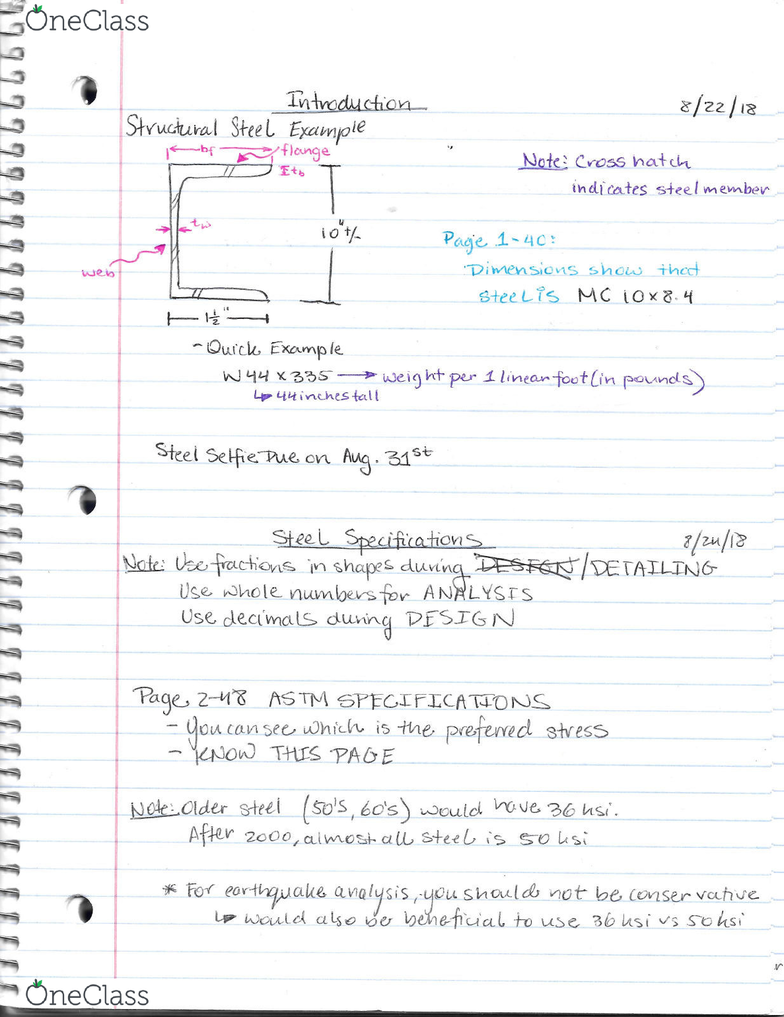 OneClass
Introduction
8/22/18
Structural Steel Example
bf
flange
tb
Note: Cross hatch
indicates steel member
tw
10" +/-
web
Page 1-40:
Dimensions show that
steel is MC 10x8.4
1 1/2"
- Quick Example
W44x335 → weight per 1 linear foot (in pounds)
↳ 44 inches tall
Steel Selfie Due on Aug. 31st
Steel Specifications
8/24/18
Note: Use fractions in shapes during DESIGN/DETAILING
Use whole numbers for ANALYSIS
Use decimals during DESIGN
Page 2-48 ASTM SPECIFICATIONS
- You can see which is the preferred stress
- KNOW THIS PAGE
Note: Older steel (50's, 60's) would have 36 ksi.
After 2000, almost all steel is 50 ksi
* For earthquake analysis, you should not be conservative
↳ would also be beneficial to use 36 ksi vs 50 ksi
OneClass